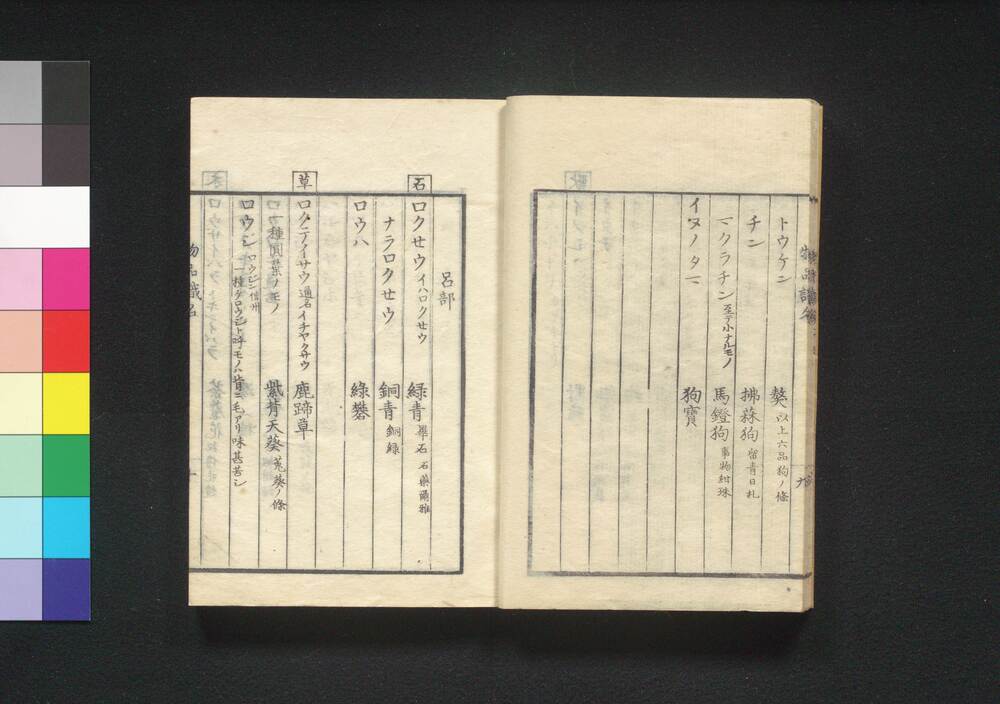 トウケン 獒 以上六品狗ノ條
チン 拂菻狗 留青日札
マクラチン 至テ小ナルモノ 馬鐙狗 事物紺珠
イヌノタマ 狗寳
呂部
石
ロクせウ イハロクせウ 緑青 畢石 石藥爾雅
ナラロクせウ 銅青 銅緑
ロウハ 綠礬
草
ロクテイサウ 通名 イチヤクサウ 鹿蹄草
一種圓葉ノモノ 紫背天葵 菟葵ノ條
ロウジン 信州
一種クロウジント呼モノハ背ニ毛アリ味甚苦シ
物品識名